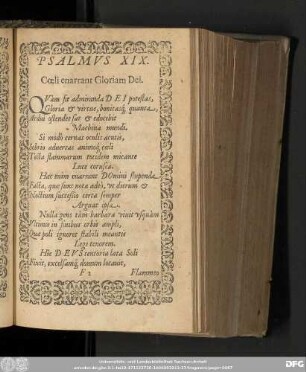 PSALMVS XIX.
Cœli enarrant Gloriam Dei.
QVàm sit admiranda DEI potestas,
Gloria & virtus, bonitasq́; quanta,
ostendet suæ & edocebit
Machina mundi.
Si modò cernas oculis acutis,
Sobrio advertas animoq́; cœli
Tecta stellarum ineidem micante
Luce corusca.
Hæc enim enarrant DOmini stupenda
Facta, quæ sunt nota adeò, ut dierum &
Noctium successio certa semper
Arguat ipsa.
Nulla gens tàm barbara vivit usquàm
Ultimis in finibus orbis ampli,
Quæ poli ignoret stabili meantis
Lege tenorem.
Hîc DEVS tentoria lata Soli
Fixit, excelsamq́; domum locavit,
F 2
Flammeo
DFG